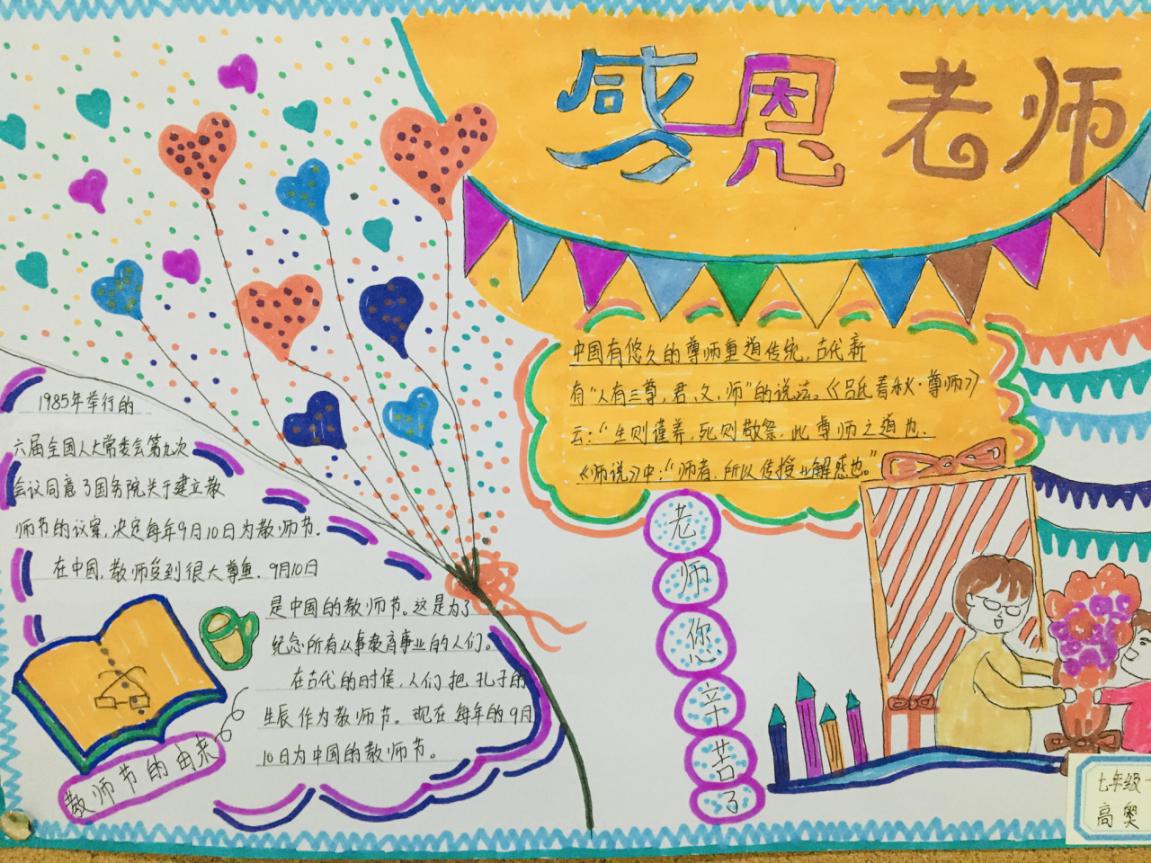 感恩老师
中国有悠久的尊师重道传统，古代就
有“人有三尊，君、父、师”的说法。《吕氏春秋·尊师》
云：“生则谨养，死则敬祭，此尊师之道也．
《师说》中：“师者，所以传授业解惑也。”
1985年举行的
六届全国人大常委会第九次
会议同意了国务院关于建立教
师节的议案，决定每年9月10日为教师节．
在中国，教师受到很大尊重．9月10日
是中国的教师节。这是为了
纪念所有从事教育事业的人们。
在古代的时候，人们把孔子的
生辰作为教师节。现在每年的9月
10日为中国的教师节。
教师节的由来
老师您辛苦了
七年级
高奥